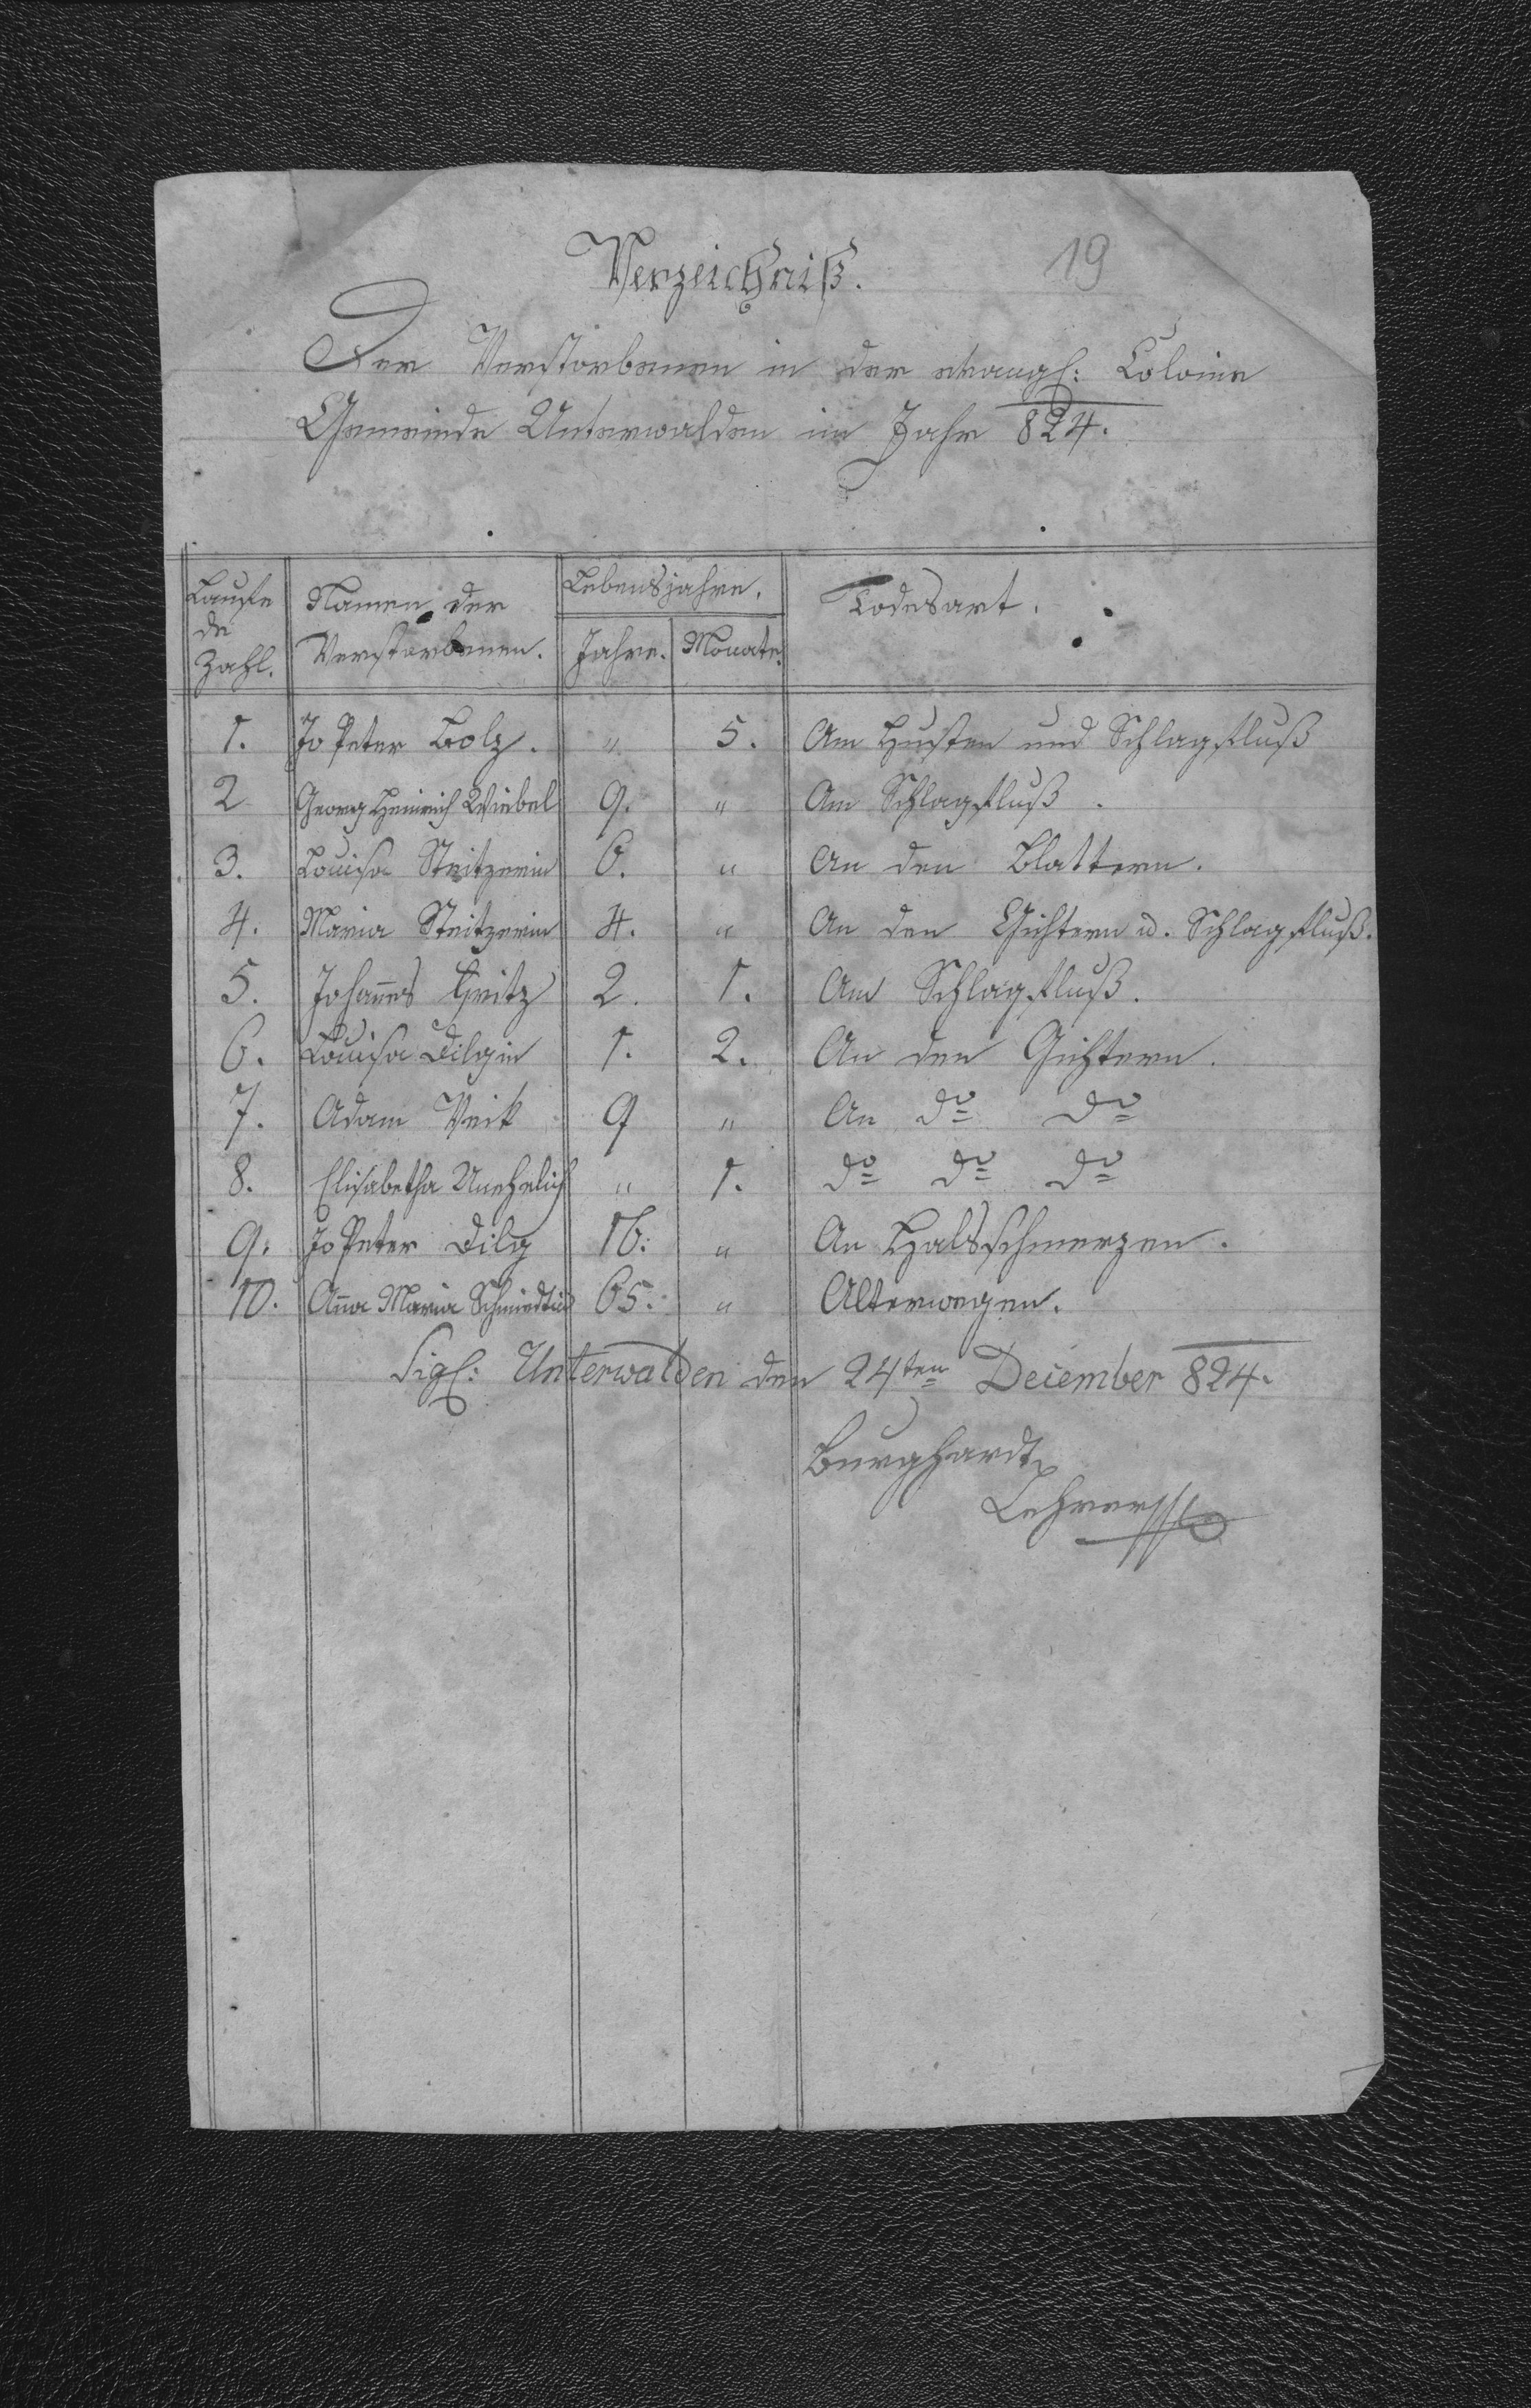 Verzeichniß. 19
Der Verstorbenen in der evangl: Colonie
Gemeinde Unterwalden im Jahr 824.
Laufen
de
Zahl. Namen der
Verstorbenen. Lebensjahre.
Jahre. Monate. Todesart.
1. Jo Peter Bolz. " 5. Am Husten und Schlagfluß
2 Georg Heinrich Wiebel 9. " Am Schlagfluß.
3. Louisa Steitzerin 6. " An den Blattern.
4. Maria Steitzerin 4. " An den Gichtern u. Schlagfluß.
5. Johannes 2. 1. Am Schlagfluß.
6. Louisa Dilgin 1. 2. An den Gichtern.
7. Adam Veit 9 " An do do
8. Elisabetha Unehelich " 1. do do do
9. Jo Peter Dilg 16. " An Halsschmerzen.
10. Anna Maria Schmiedtin 65. " Alterwegen.
Sigl: Unterwalden den 24ten December 824.
Burghardt
Lehrer